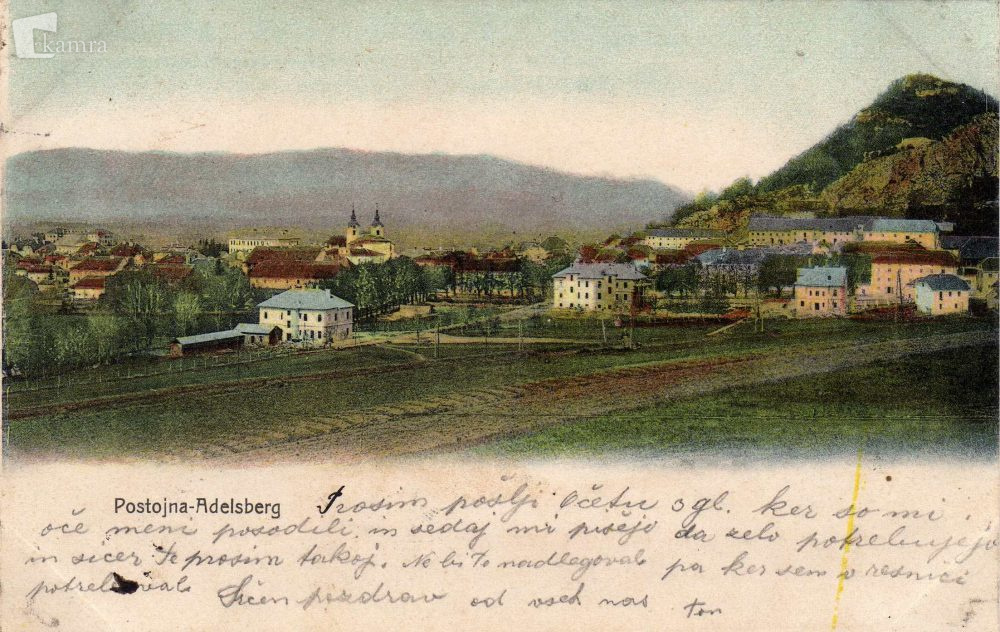 kamra
Postojna-Adelsberg
Prosim pošlji Očetu 3 gl. ker so mi
oče meni posodili in sedaj mi pišejo da zelo potrebujejo
in sicer Te prosim takoj. Ne bi Te nadlegoval pa ker sem v resnici
potreboval Srčen pozdrav od vseh nas